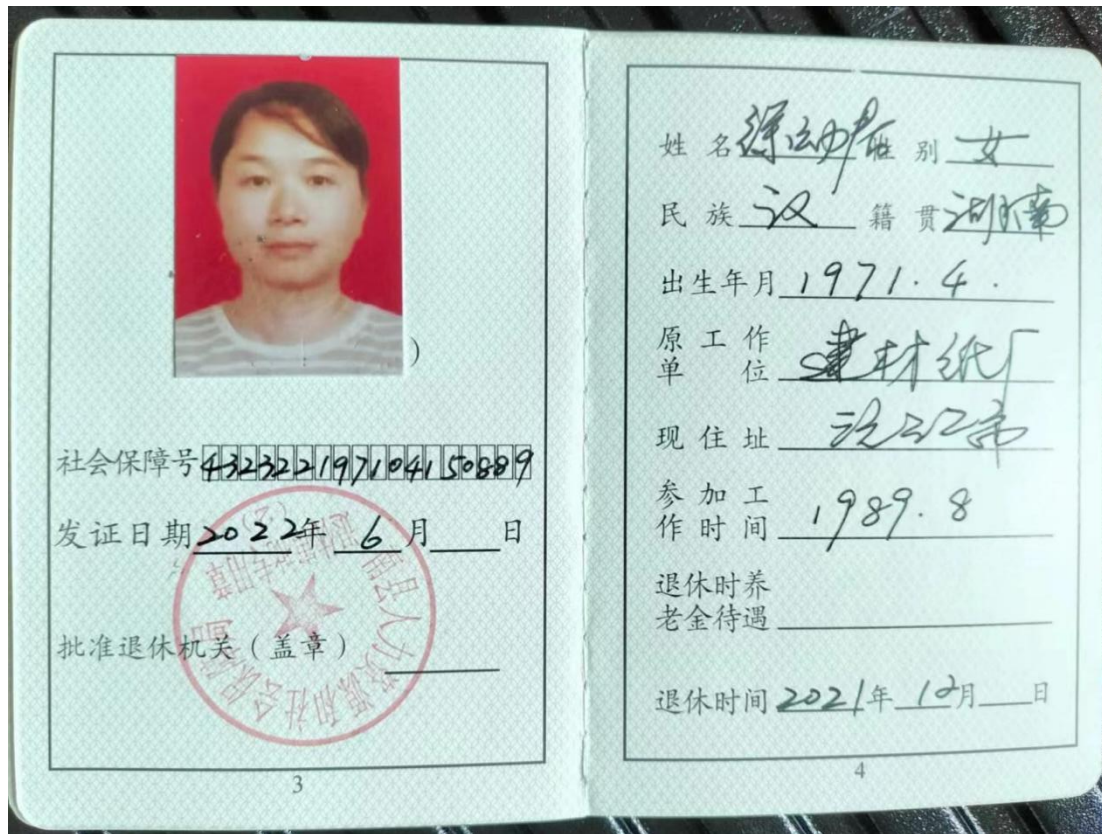 )
社会保障号432322197104150889
发证日期2022年6月 日
批准退休机关（盖章）
南县人力资源和社会保障局
(2)
3
姓名 徐幼 性别 女
民族 汉 籍贯 湖南
出生年月 1971.4.
原工作
单位 建材纸厂
现住址 沅江市
参加工
作时间 1989.8
退休时养
老金待遇
退休时间2021年12月 日
4